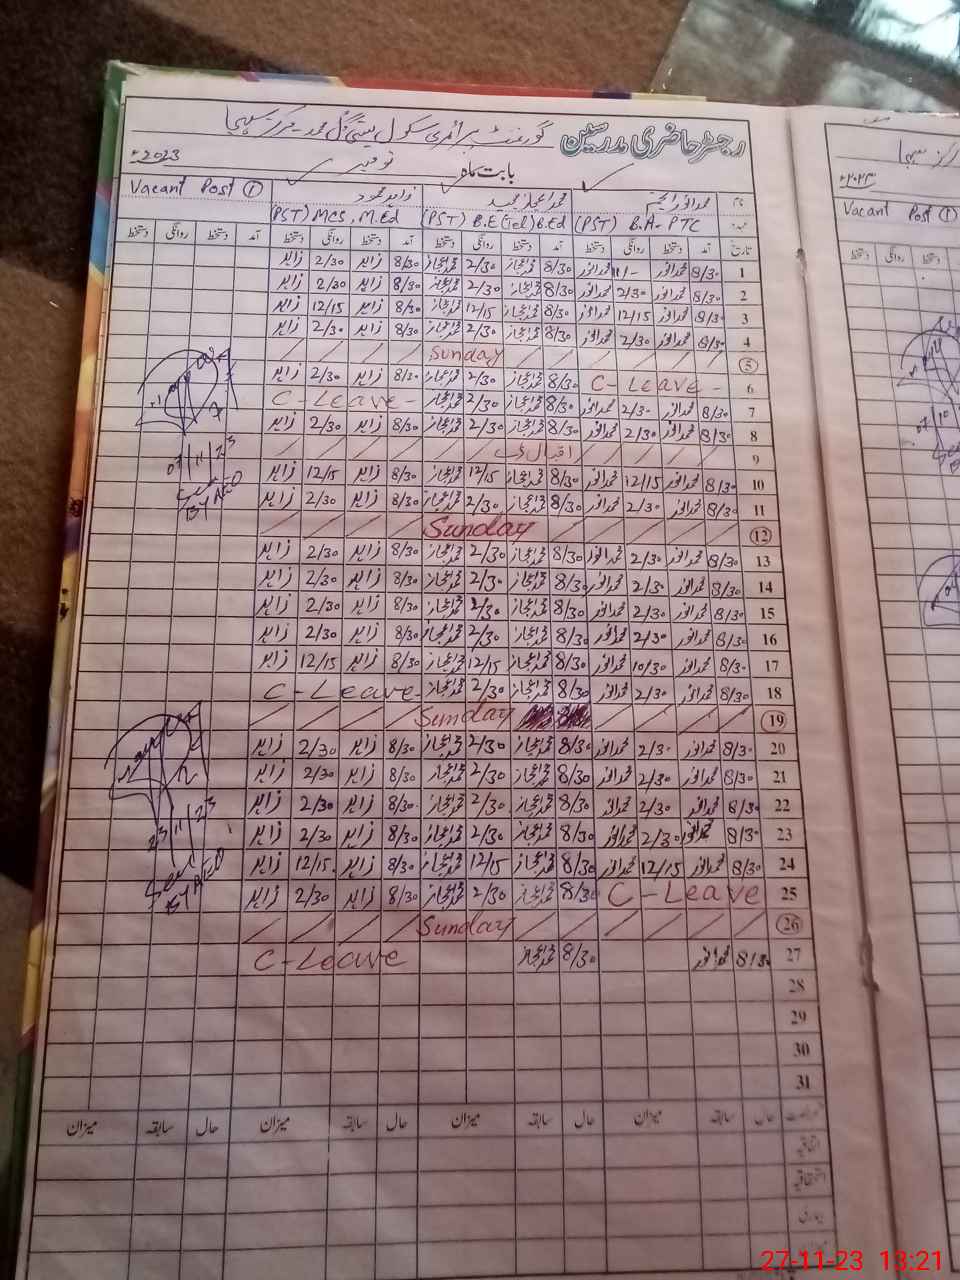 رجسٹر حاضری مدرسین گورنمنٹ پرائمری سکول بستی گل محمد۔ مرکز سہجا
بابت ماہ نومبر 2023ء
نام محمد انور محمد اعجاز مجید زاہد محمود Vacant Post ①
عہدہ (PST) B.A- PTC (PST) B.E (Tel) B.Ed (PST) MCS, M.Ed
تاریخ آمد دستخط روانگی دستخط آمد دستخط روانگی دستخط آمد دستخط روانگی دستخط آمد دستخط روانگی دستخط
1 8/30 محمد انور 11/- محمد انور 8/30 محمد اعجاز 2/30 محمد اعجاز 8/30 زاہد 2/30 زاہد
2 8/30 محمد انور 2/30 محمد انور 8/30 محمد اعجاز 2/30 محمد اعجاز 8/30 زاہد 2/30 زاہد
3 8/30 محمد انور 12/15 محمد انور 8/30 محمد اعجاز 12/15 محمد اعجاز 8/30 زاہد 12/15 زاہد
4 8/30 محمد انور 2/30 محمد انور 8/30 محمد اعجاز 2/30 محمد اعجاز 8/30 زاہد 2/30 زاہد
5 Sunday
6 C-Leave- 8/30 محمد اعجاز 2/30 محمد اعجاز 8/30 زاہد 2/30 زاہد
7 8/30 محمد انور 2/30 محمد انور 8/30 محمد اعجاز 2/30 محمد اعجاز C-Leave-
8 8/30 محمد انور 2/30 محمد انور 8/30 محمد اعجاز 2/30 محمد اعجاز 8/30 زاہد 2/30 زاہد
9 اقبال ڈے
10 8/30 محمد انور 12/15 محمد انور 8/30 محمد اعجاز 12/15 محمد اعجاز 8/30 زاہد 12/15 زاہد
11 8/30 محمد انور 2/30 محمد انور 8/30 محمد اعجاز 2/30 محمد اعجاز 8/30 زاہد 2/30 زاہد
12 Sunday
13 8/30 محمد انور 2/30 محمد انور 8/30 محمد اعجاز 2/30 محمد اعجاز 8/30 زاہد 2/30 زاہد
14 8/30 محمد انور 2/30 محمد انور 8/30 محمد اعجاز 2/30 محمد اعجاز 8/30 زاہد 2/30 زاہد
15 8/30 محمد انور 2/30 محمد انور 8/30 محمد اعجاز 2/30 محمد اعجاز 8/30 زاہد 2/30 زاہد
16 8/30 محمد انور 2/30 محمد انور 8/30 محمد اعجاز 2/30 محمد اعجاز 8/30 زاہد 2/30 زاہد
17 8/30 محمد انور 10/30 محمد انور 8/30 محمد اعجاز 12/15 محمد اعجاز 8/30 زاہد 12/15 زاہد
18 8/30 محمد انور 2/30 محمد انور 8/30 محمد اعجاز 2/30 محمد اعجاز C-Leave-
19 Sunday
20 8/30 محمد انور 2/30 محمد انور 8/30 محمد اعجاز 2/30 محمد اعجاز 8/30 زاہد 2/30 زاہد
21 8/30 محمد انور 2/30 محمد انور 8/30 محمد اعجاز 2/30 محمد اعجاز 8/30 زاہد 2/30 زاہد
22 8/30 محمد انور 2/30 محمد انور 8/30 محمد اعجاز 2/30 محمد اعجاز 8/30 زاہد 2/30 زاہد
23 8/30 محمد انور 2/30 محمد انور 8/30 محمد اعجاز 2/30 محمد اعجاز 8/30 زاہد 2/30 زاہد
24 8/30 محمد انور 12/15 محمد انور 8/30 محمد اعجاز 12/15 محمد اعجاز 8/30 زاہد 12/15 زاہد
25 C-Leave 8/30 محمد اعجاز 2/30 محمد اعجاز 8/30 زاہد 2/30 زاہد
26 Sunday
27 8/30 محمد انور 8/30 محمد اعجاز C-Leave
28
29
30
31
رخصت حال سابقہ میزان حال سابقہ میزان حال سابقہ میزان حال سابقہ میزان
اتفاقیہ
استحقاقیہ
بیماری
میزان
07/11/23
Seen
BY AEO
23/11/23
Seen
BY AEO
مرکز سہجا
2023ء
Vacant Post ①
دستخط روانگی دستخط
27-11-23 13:21